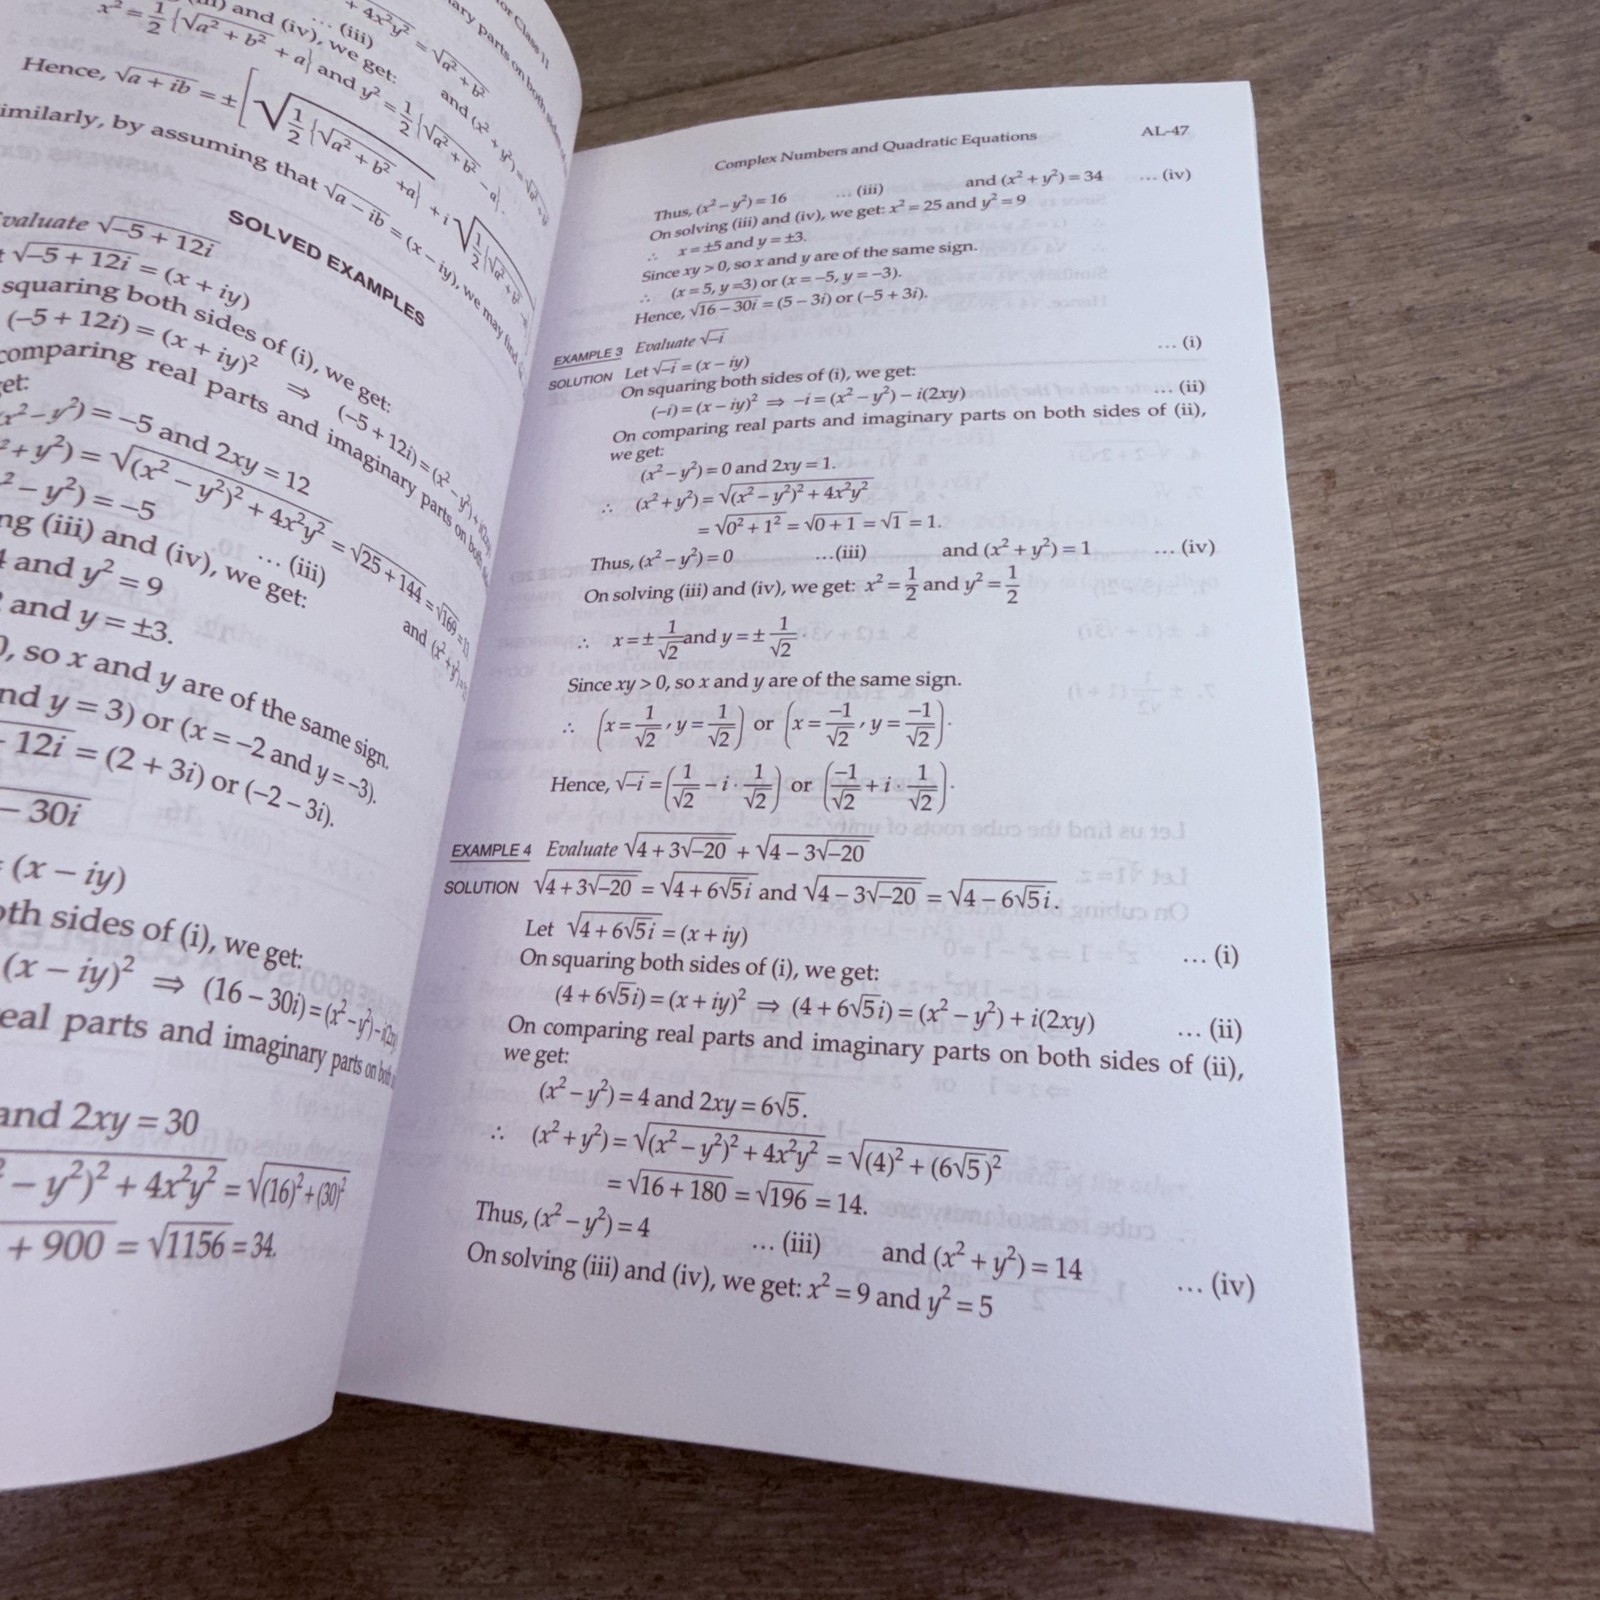 or Class 11
x² = 1/2 {√(a² + b²) + a} and y² = 1/2 {√(a² + b²) − a}.
Hence, √(a + ib) = ± [√(1/2 {√(a² + b²) + a}) + i √(1/2 {√(a² + b²) −
imilarly, by assuming that √(a − ib) = (x − iy), we may find
SOLVED EXAMPLES
Evaluate √(−5 + 12i)
√(−5 + 12i) = (x + iy)
squaring both sides of (i), we get:
(−5 + 12i) = (x + iy)² ⇒ (−5 + 12i) = (x² − y²) + i(2xy)
comparing real parts and imaginary parts on both
get:
x² − y²) = −5 and 2xy = 12
² + y²) = √((x² − y²)² + 4x²y²) = √(25 + 144) = √169 = 13
² − y²) = −5 … (iii) and (x² + y²) =
ng (iii) and (iv), we get:
4 and y² = 9
2 and y = ±3.
0, so x and y are of the same sign.
nd y = 3) or (x = −2 and y = −3).
12i = (2 + 3i) or (−2 − 3i).
− 30i
(x − iy)
oth sides of (i), we get:
(x − iy)² ⇒ (16 − 30i) = (x² − y²) − i(2xy)
eal parts and imaginary parts on both
and 2xy = 30
² − y²)² + 4x²y² = √((16)² + (30)²)
+ 900 = √1156 = 34.
Complex Numbers and Quadratic Equations AL-47
Thus, (x² − y²) = 16 … (iii) and (x² + y²) = 34 … (iv)
On solving (iii) and (iv), we get: x² = 25 and y² = 9
∴ x = ±5 and y = ±3.
Since xy > 0, so x and y are of the same sign.
∴ (x = 5, y =3) or (x = −5, y = −3).
Hence, √(16 − 30i) = (5 − 3i) or (−5 + 3i).
EXAMPLE 3 Evaluate √−i
SOLUTION Let √−i = (x − iy) … (i)
On squaring both sides of (i), we get:
(−i) = (x − iy)² ⇒ −i = (x² − y²) − i(2xy) … (ii)
On comparing real parts and imaginary parts on both sides of (ii),
we get:
(x² − y²) = 0 and 2xy = 1.
∴ (x² + y²) = √((x² − y²)² + 4x²y²)
= √(0² + 1²) = √(0 + 1) = √1 = 1.
Thus, (x² − y²) = 0 …(iii) and (x² + y²) = 1 … (iv)
On solving (iii) and (iv), we get: x² = 1/2 and y² = 1/2
∴ x = ± 1/√2 and y = ± 1/√2.
Since xy > 0, so x and y are of the same sign.
∴ (x = 1/√2, y = 1/√2) or (x = −1/√2, y = −1/√2).
Hence, √−i = (1/√2 − i · 1/√2) or (−1/√2 + i · 1/√2).
EXAMPLE 4 Evaluate √(4 + 3√−20) + √(4 − 3√−20)
SOLUTION √(4 + 3√−20) = √(4 + 6√5i) and √(4 − 3√−20) = √(4 − 6√5i).
Let √(4 + 6√5i) = (x + iy) … (i)
On squaring both sides of (i), we get:
(4 + 6√5i) = (x + iy)² ⇒ (4 + 6√5i) = (x² − y²) + i(2xy) … (ii)
On comparing real parts and imaginary parts on both sides of (ii),
we get:
(x² − y²) = 4 and 2xy = 6√5.
∴ (x² + y²) = √((x² − y²)² + 4x²y²) = √((4)² + (6√5)²)
= √(16 + 180) = √196 = 14.
Thus, (x² − y²) = 4 … (iii) and (x² + y²) = 14 … (iv)
On solving (iii) and (iv), we get: x² = 9 and y² = 5